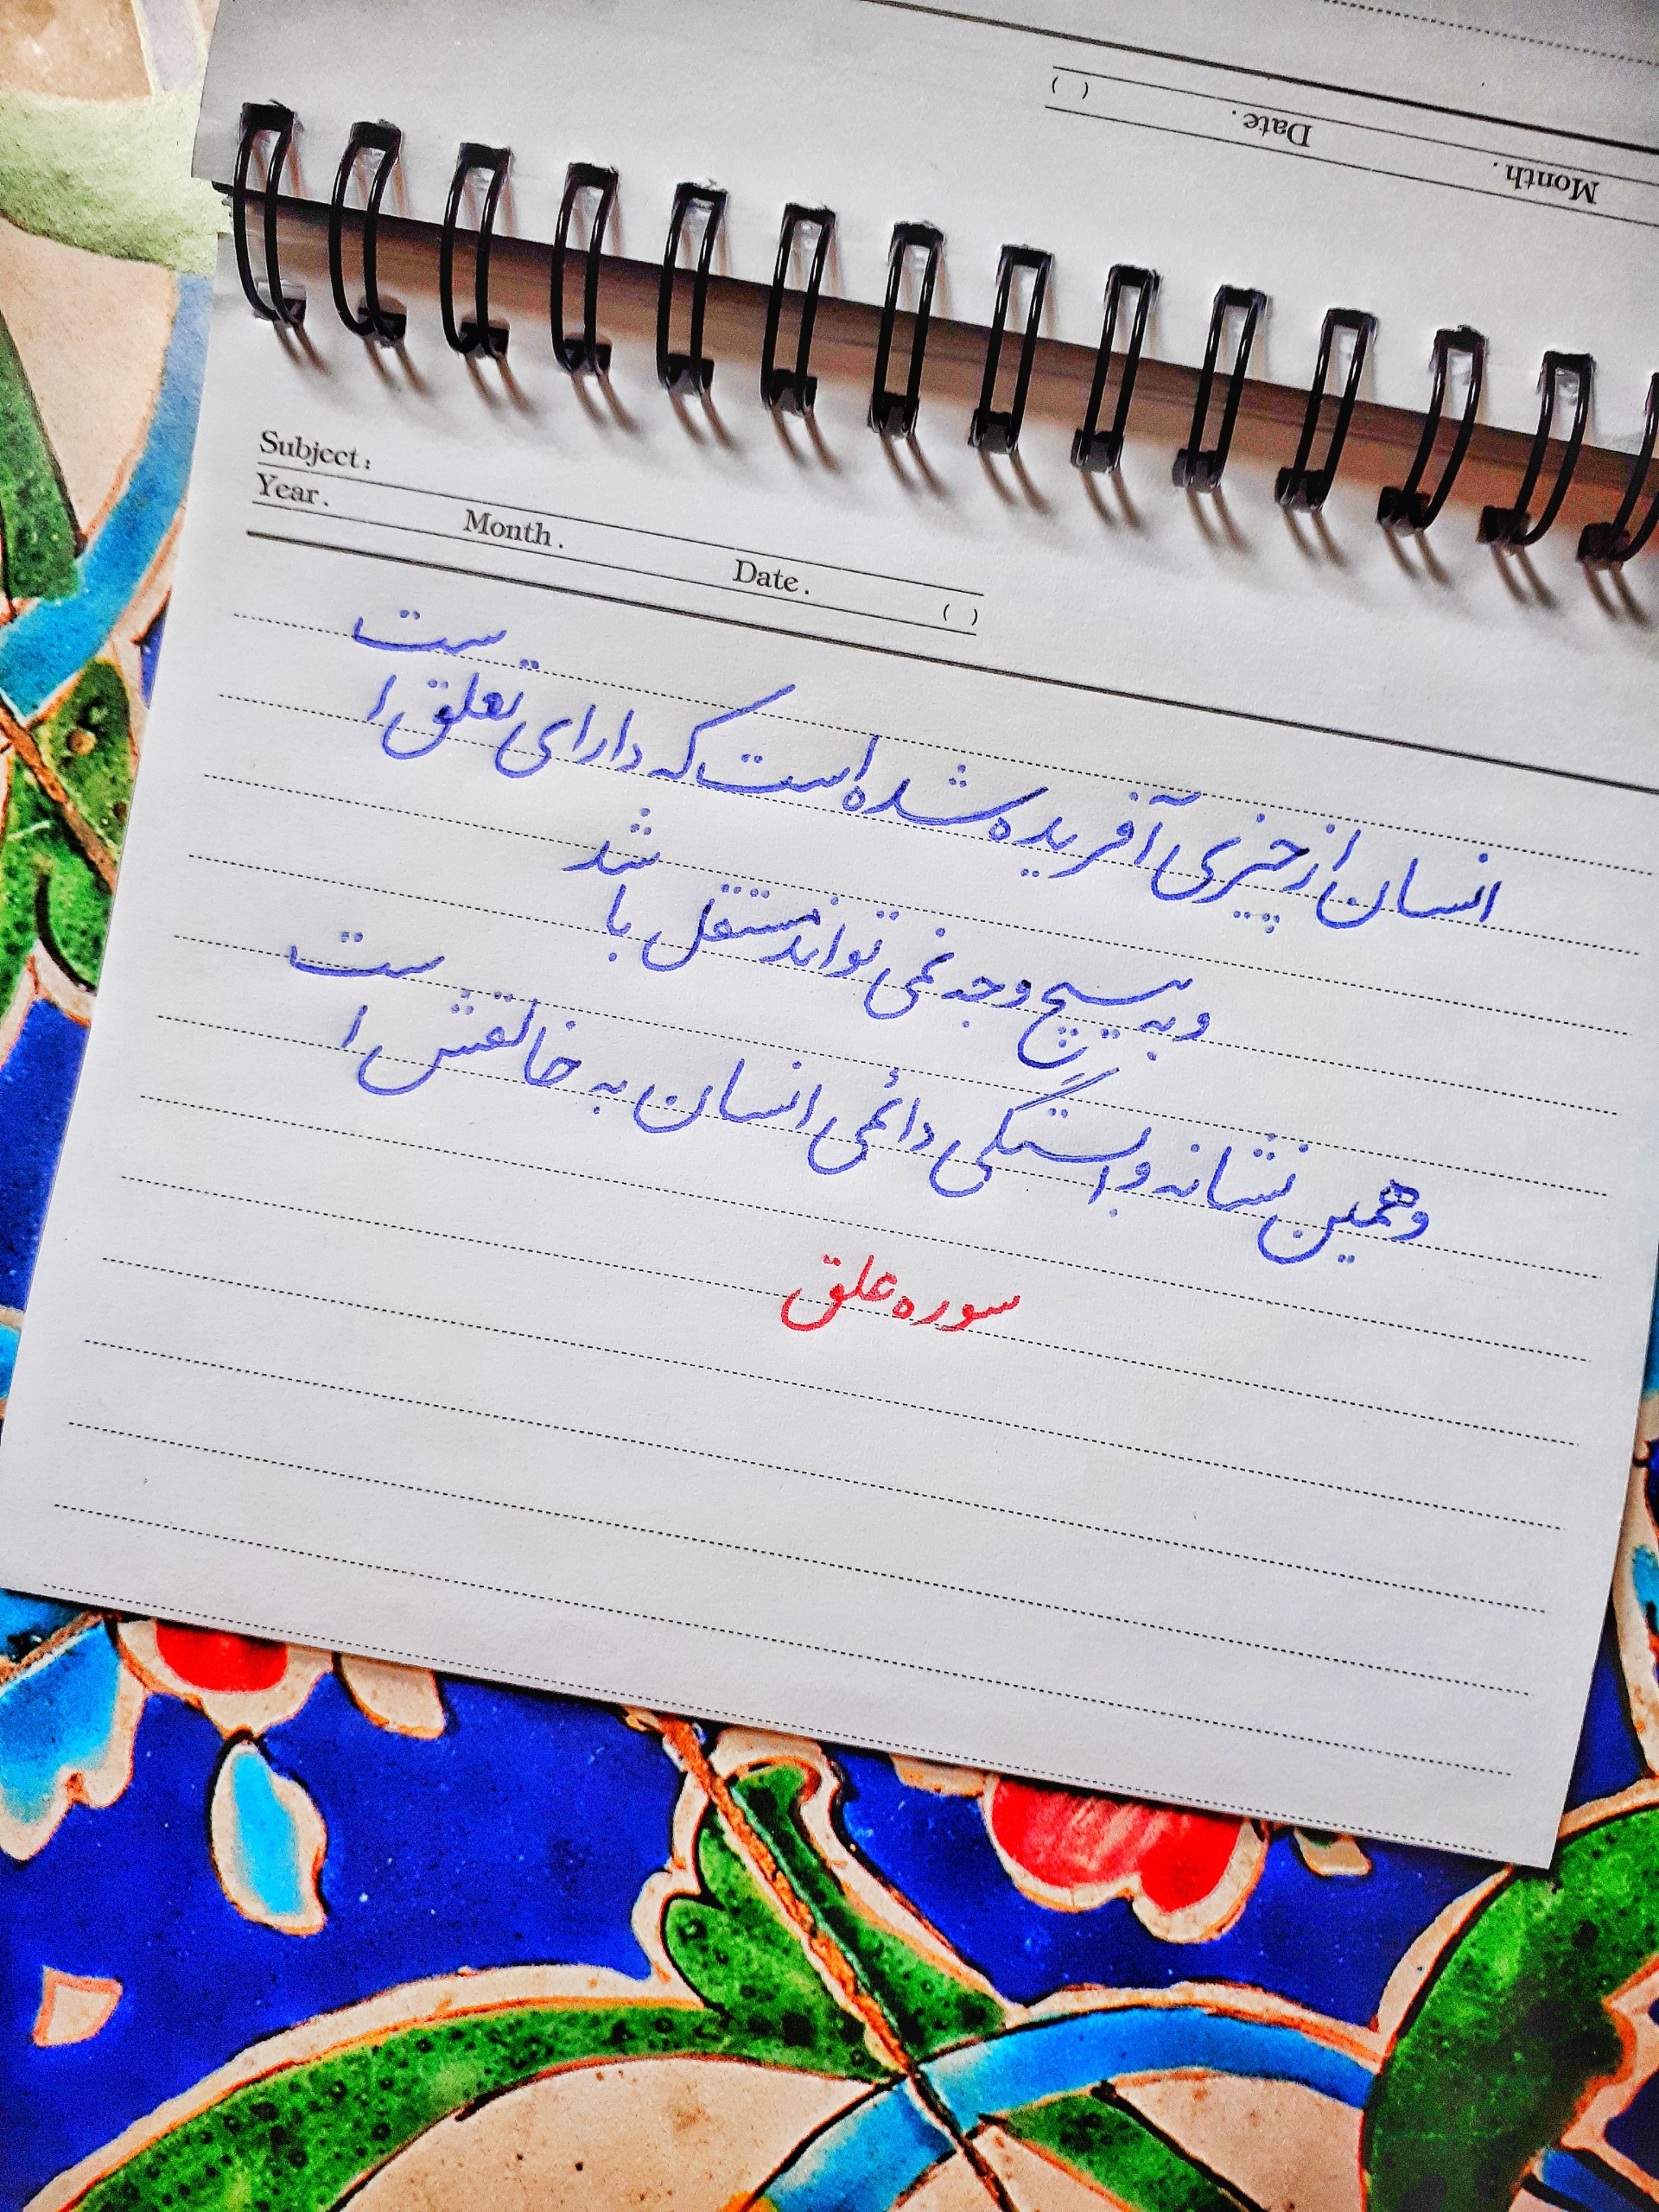 Date.
( )
Month.
Subject:
Year. Month. Date. ( )
انسان از چیزی آفریده شده است که دارای تعلق است
و به هیچ وجه نمی تواند مستقل باشد
و همین نشانه وابستگی دائمی انسان به خالقش است
سوره علق